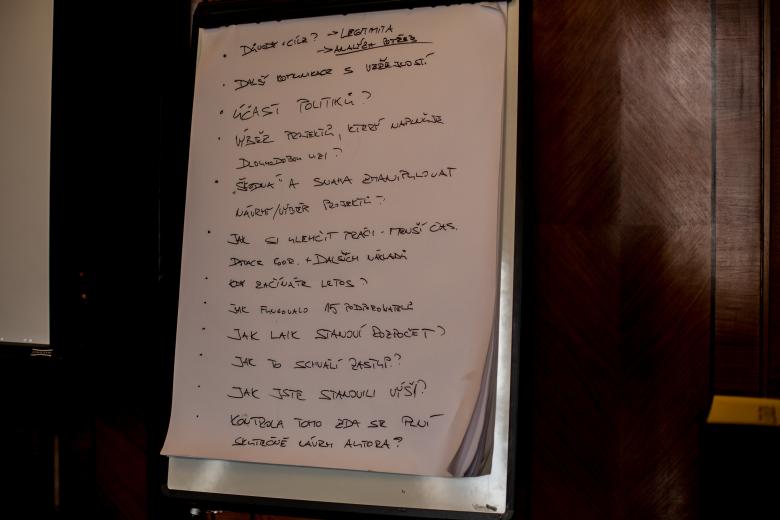 • DŮVOD + CÍLE? → LEGITIMITA
→ ANALÝZA POTŘEB
• DALŠÍ KOMUNIKACE S VEŘEJNOSTÍ
• ÚČAST POLITIKŮ?
• VÝBĚR PROJEKTŮ, KTERÝ NAPLŇUJE
DLOUHODOBOU VIZI?
• "ŠKODNÁ" A SNAHA ZMANIPULOVAT
NÁVRHY/VÝBĚR PROJEKTŮ?
• JAK SI ULEHČIT PRÁCI - MENŠÍ ČAS.
DOTACE COOR. + DALŠÍCH NÁKLADŮ
• KDY ZAČÍNÁTE LETOS?
• JAK FUNGOVALO 15 PODPOROVATELŮ
• JAK LAIK STANOVÍ ROZPOČET?
• JAK TO SCHVÁLÍ ZASTUP.?
• JAK JSTE STANOVILI VÝŠI?
• KONTROLA TOHO ZDA SE PLNÍ
SKUTEČNĚ NÁVRH AUTORA?